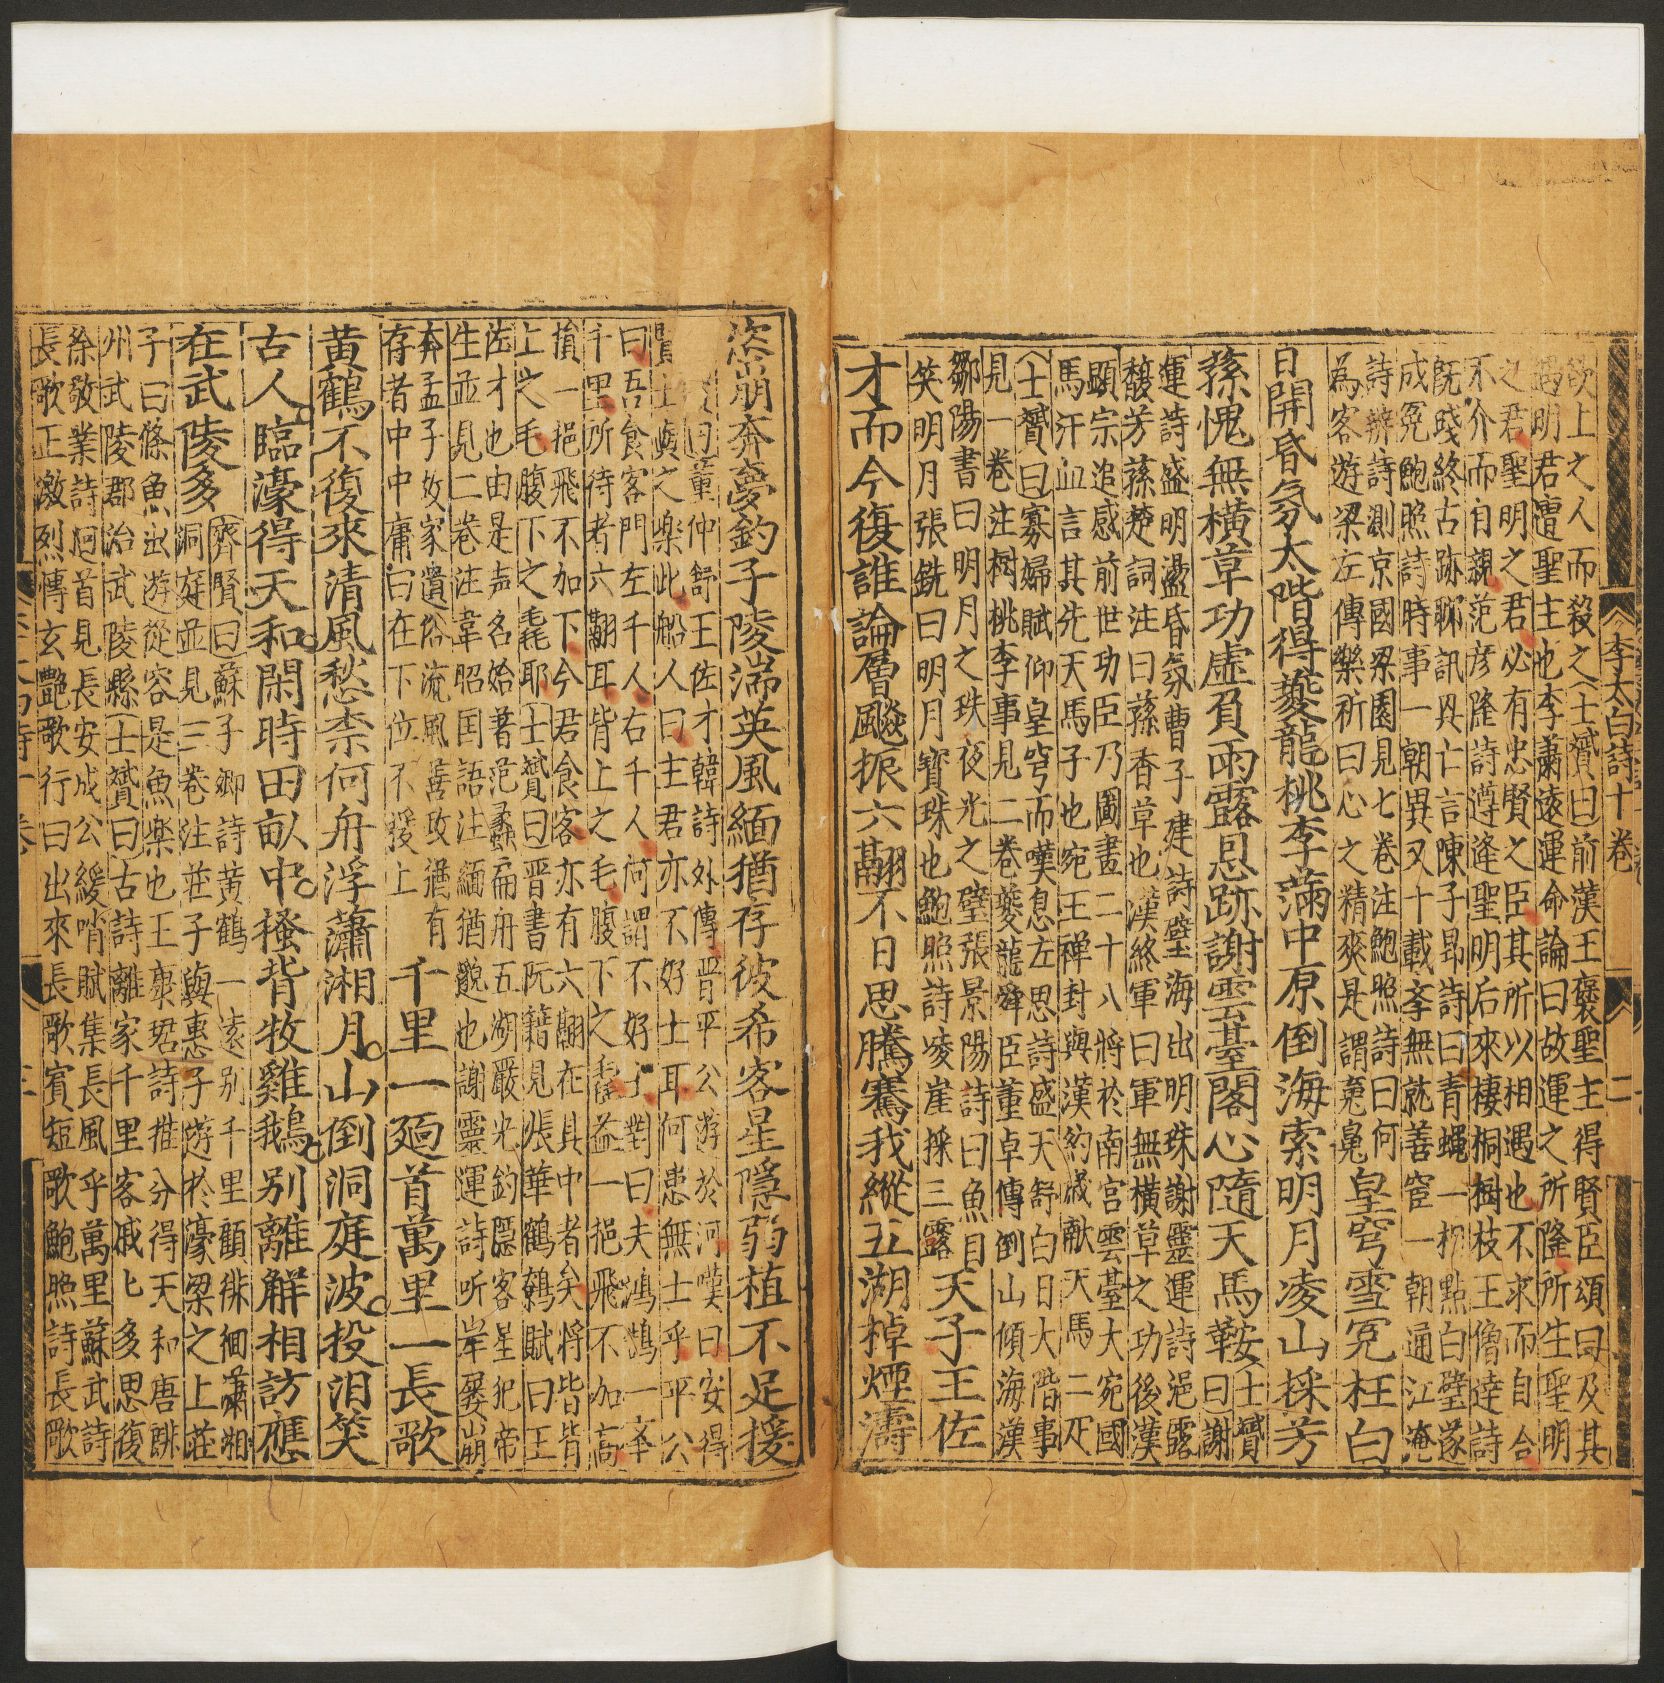 李太白詩十卷
二
欲上之人而殺之士贇曰前漢王褒聖主得賢臣頌曰及其
遇明君遭聖主也李蕭遠運命論曰故運之所隆所生聖明
之君聖明之君必有忠賢之臣其所以相遇也不求而自合
不介而自親范彦隆詩遵逢聖明后來棲桐樹枝王僧達詩
旣踐終古跡聊訊興亡言陳子昂詩曰青蠅一相點白璧遂
成冤鮑照詩時事一朝異又十載學無就善宦一朝通江淹
詩辨詩測京國梁園見七卷注鮑照詩曰何
為客遊梁左傳樂祈曰心之精爽是謂䰟鬼
皇穹雪冤枉白
日開昏氛太階得夔龍桃李滿中原倒海索明月凌山採芳
蓀愧無橫草功虛負雨露恩跡謝雲臺閣心隨天馬鞍士贇曰謝
運詩盛明盪昏氛曹子建詩壁海出明珠謝靈運詩浥露
馥芳蓀楚詞注曰蓀香草也漢終軍曰軍無橫草之功後漢
顯宗追感前世功臣乃圖畫二十八將於南宮雲臺大宛國
馬汗血言其先天馬子也宛王禪封與漢約歲獻天馬二疋
士贇曰寡婦賦仰皇穹而嘆息左思詩盛天舒白日大階事
見一卷注樹桃李事見二卷夔龍舜臣董卓傳倒山傾海漢
鄒陽書曰明月之珠夜光之璧張景陽詩曰魚目
笑明月張銑曰明月寶珠也鮑照詩凌崖採三露
天子王佐
才而今復誰論層飈振六翮不日思騰騫我縱五湖棹煙濤
恣崩奔夢釣子陵湍英風緬猶存彼希客星隱弱植不足援
曰董仲舒王佐才韓詩外傳晉平公游於河嘆曰安得
賢士與之樂此船人曰主君亦不好士耳何患無士乎平公
曰吾食客門左千人右千人何謂不好士對曰夫鴻鵠一舉
千里所待者六翮耳背上之毛腹下之毳益一挹飛不加高
損一挹飛不加下今君食客亦有六翮在其中者矣将皆背
上之毛腹下之毳耶士贇曰晋書阮籍見張華鶴鷯賦曰王
佐才也由是声名始著范蠡扁舟五湖嚴光釣隱客星犯帝
生並見二卷注韋昭国語注緬猶邈也謝靈運詩听岸屡崩
奔孟子故家遺俗流風善政猶有
存者中中庸曰在下位不援上
千里一廻首萬里一長歌
黄鶴不復來清風愁柰何舟浮瀟湘月山倒洞庭波投汨笑
古人臨濠得天和閑時田畝中搔背牧雞鵝别離解相訪應
在武陵多
齊賢曰蘇子卿詩黄鶴一遠别千里顧徘徊瀟湘
洞庭並見三卷注莊子與惠子遊於濠梁之上莊
子曰鯈魚出遊從容是魚樂也王康琚詩推分得天和唐朗
州武陵郡治武陵縣士贇曰古詩離家千里客戚匕多思復
徐敬業詩迴首見長安成公綏哨賦集長風乎萬里蘇武詩
長歌正激烈傅玄艷歌行曰出來長歌賓短歌鮑照詩長歌